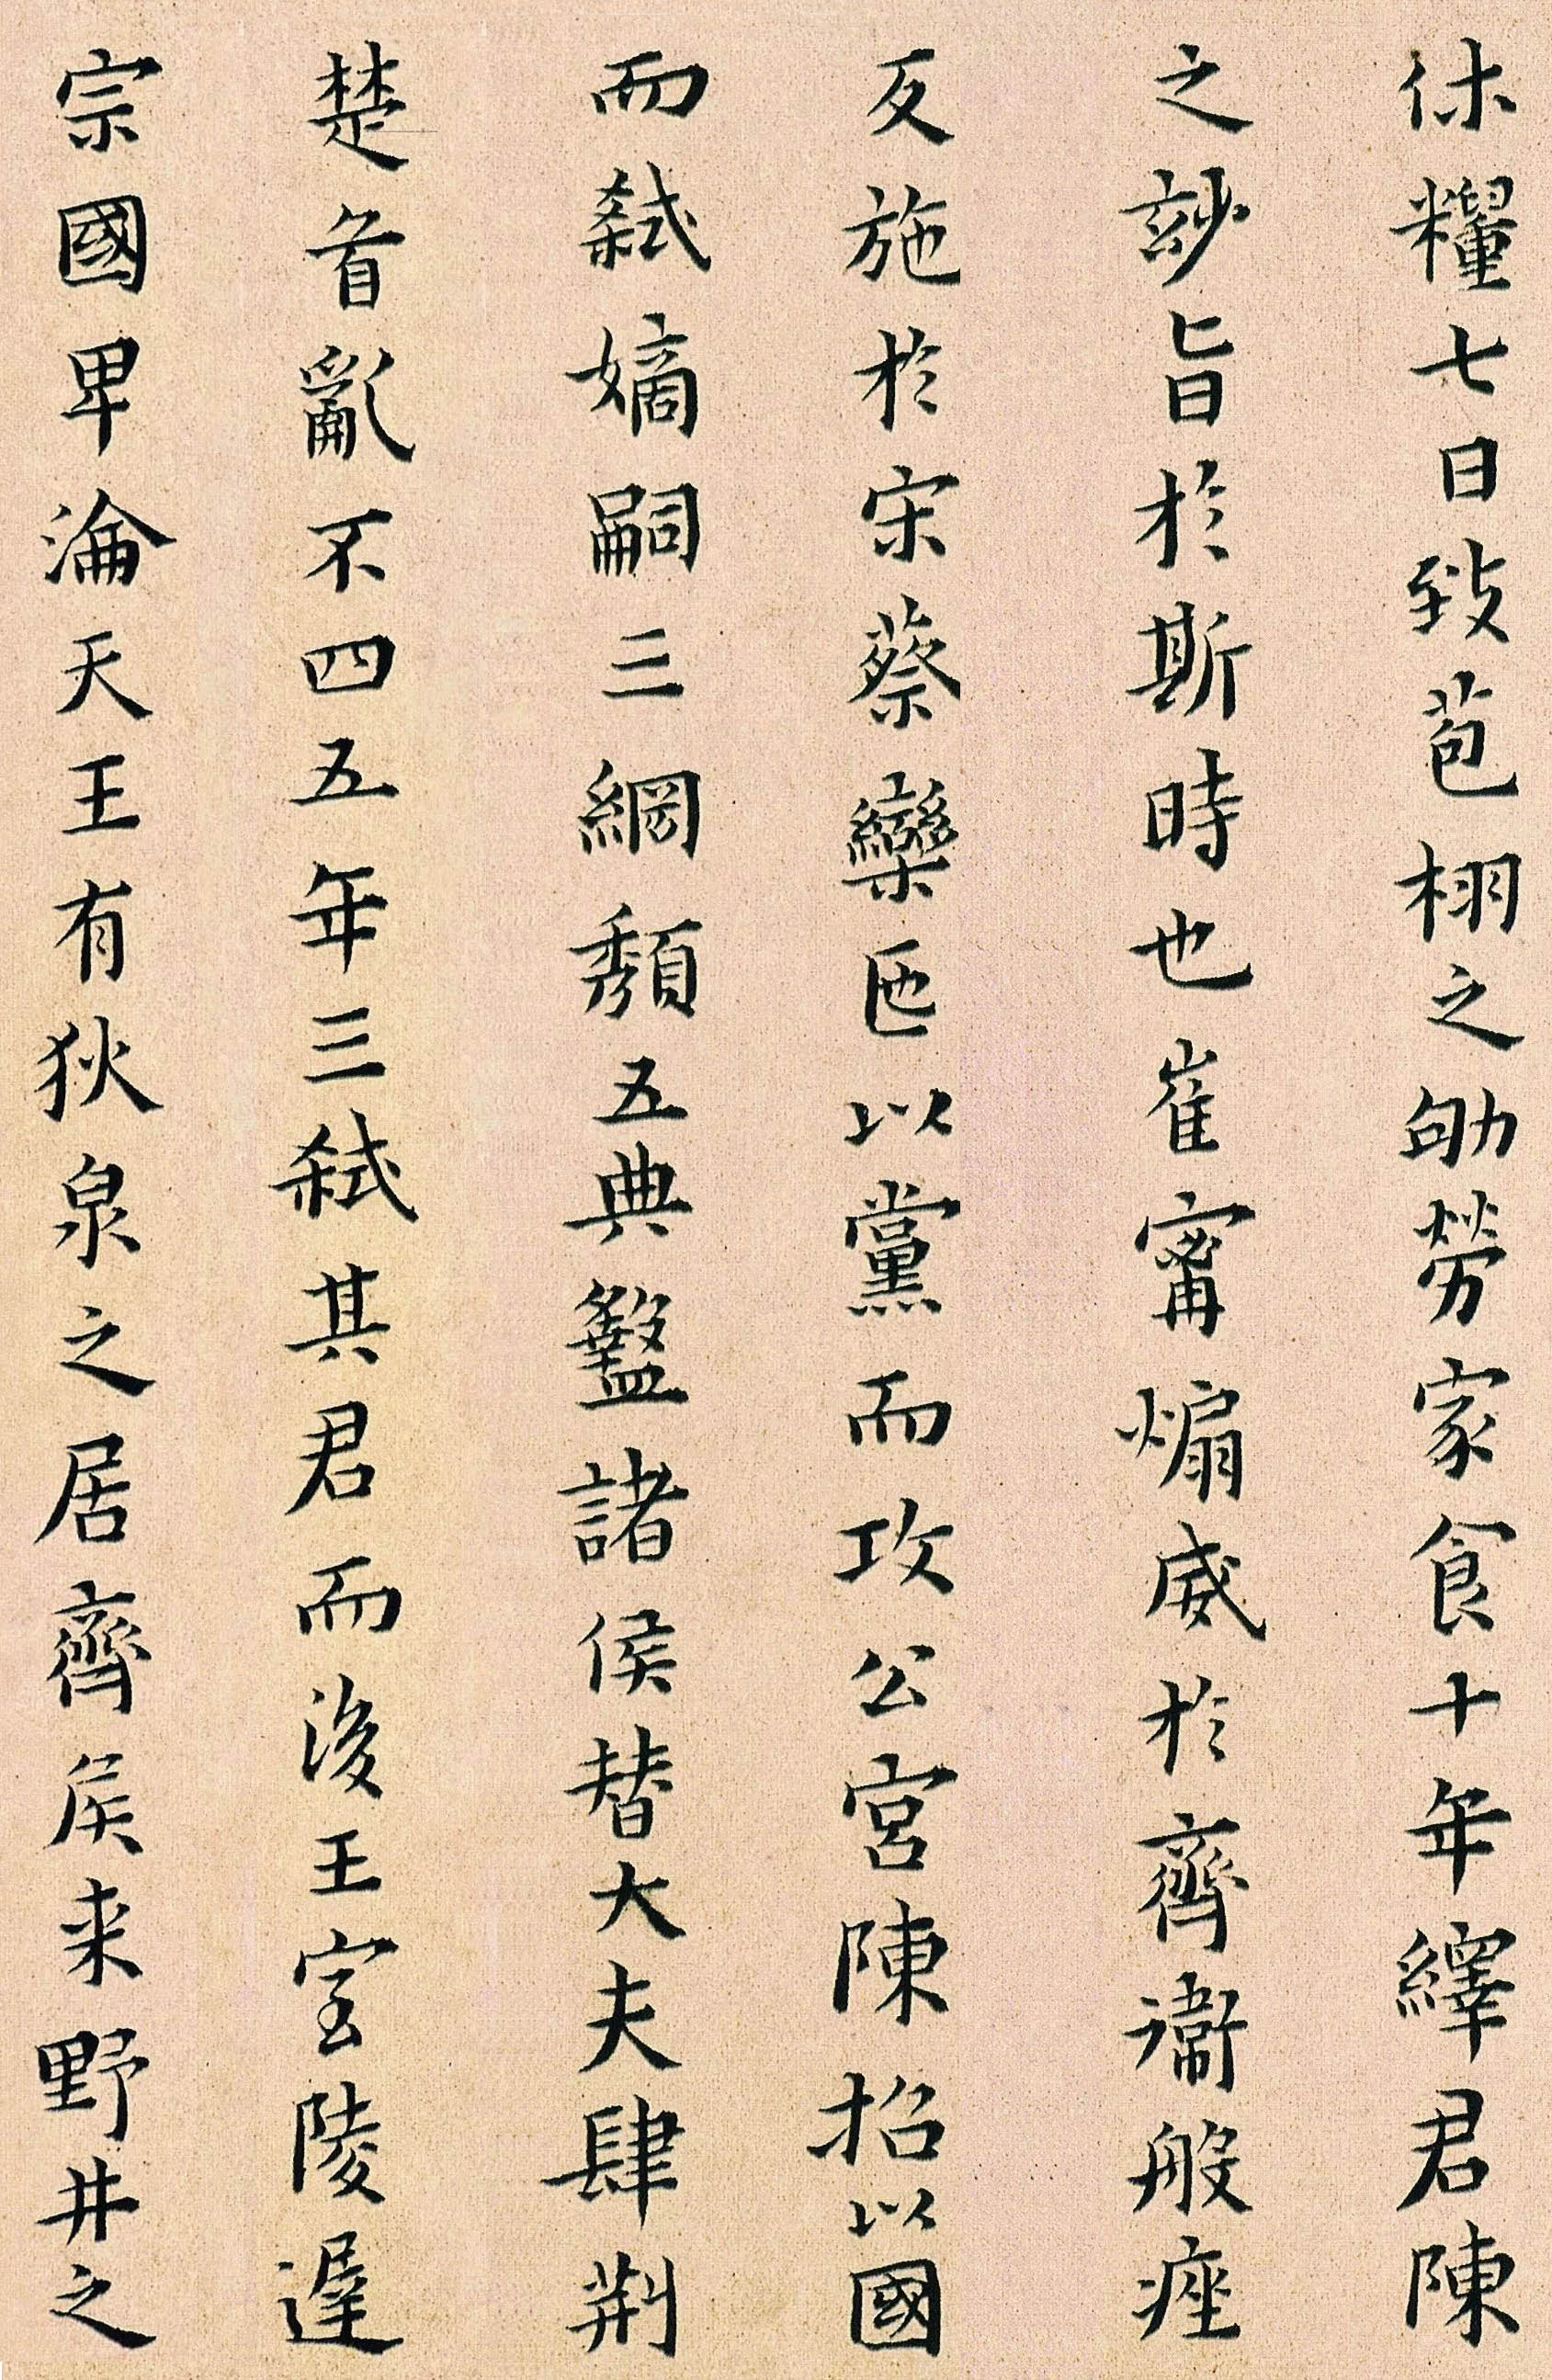 休糧七日致苞栩之劬勞家食十年繹君陳
之玅旨於斯時也崔甯煽威於齊衞般痤
反施於宋蔡欒匜以黨而攻公宮陳招以國
而弒嫡嗣三綱頽五典盭諸侯替大夫肆荆
楚首亂不四五年三弒其君而後王室陵遲
宗國卑淪天王有狄泉之居齊侯来野井之